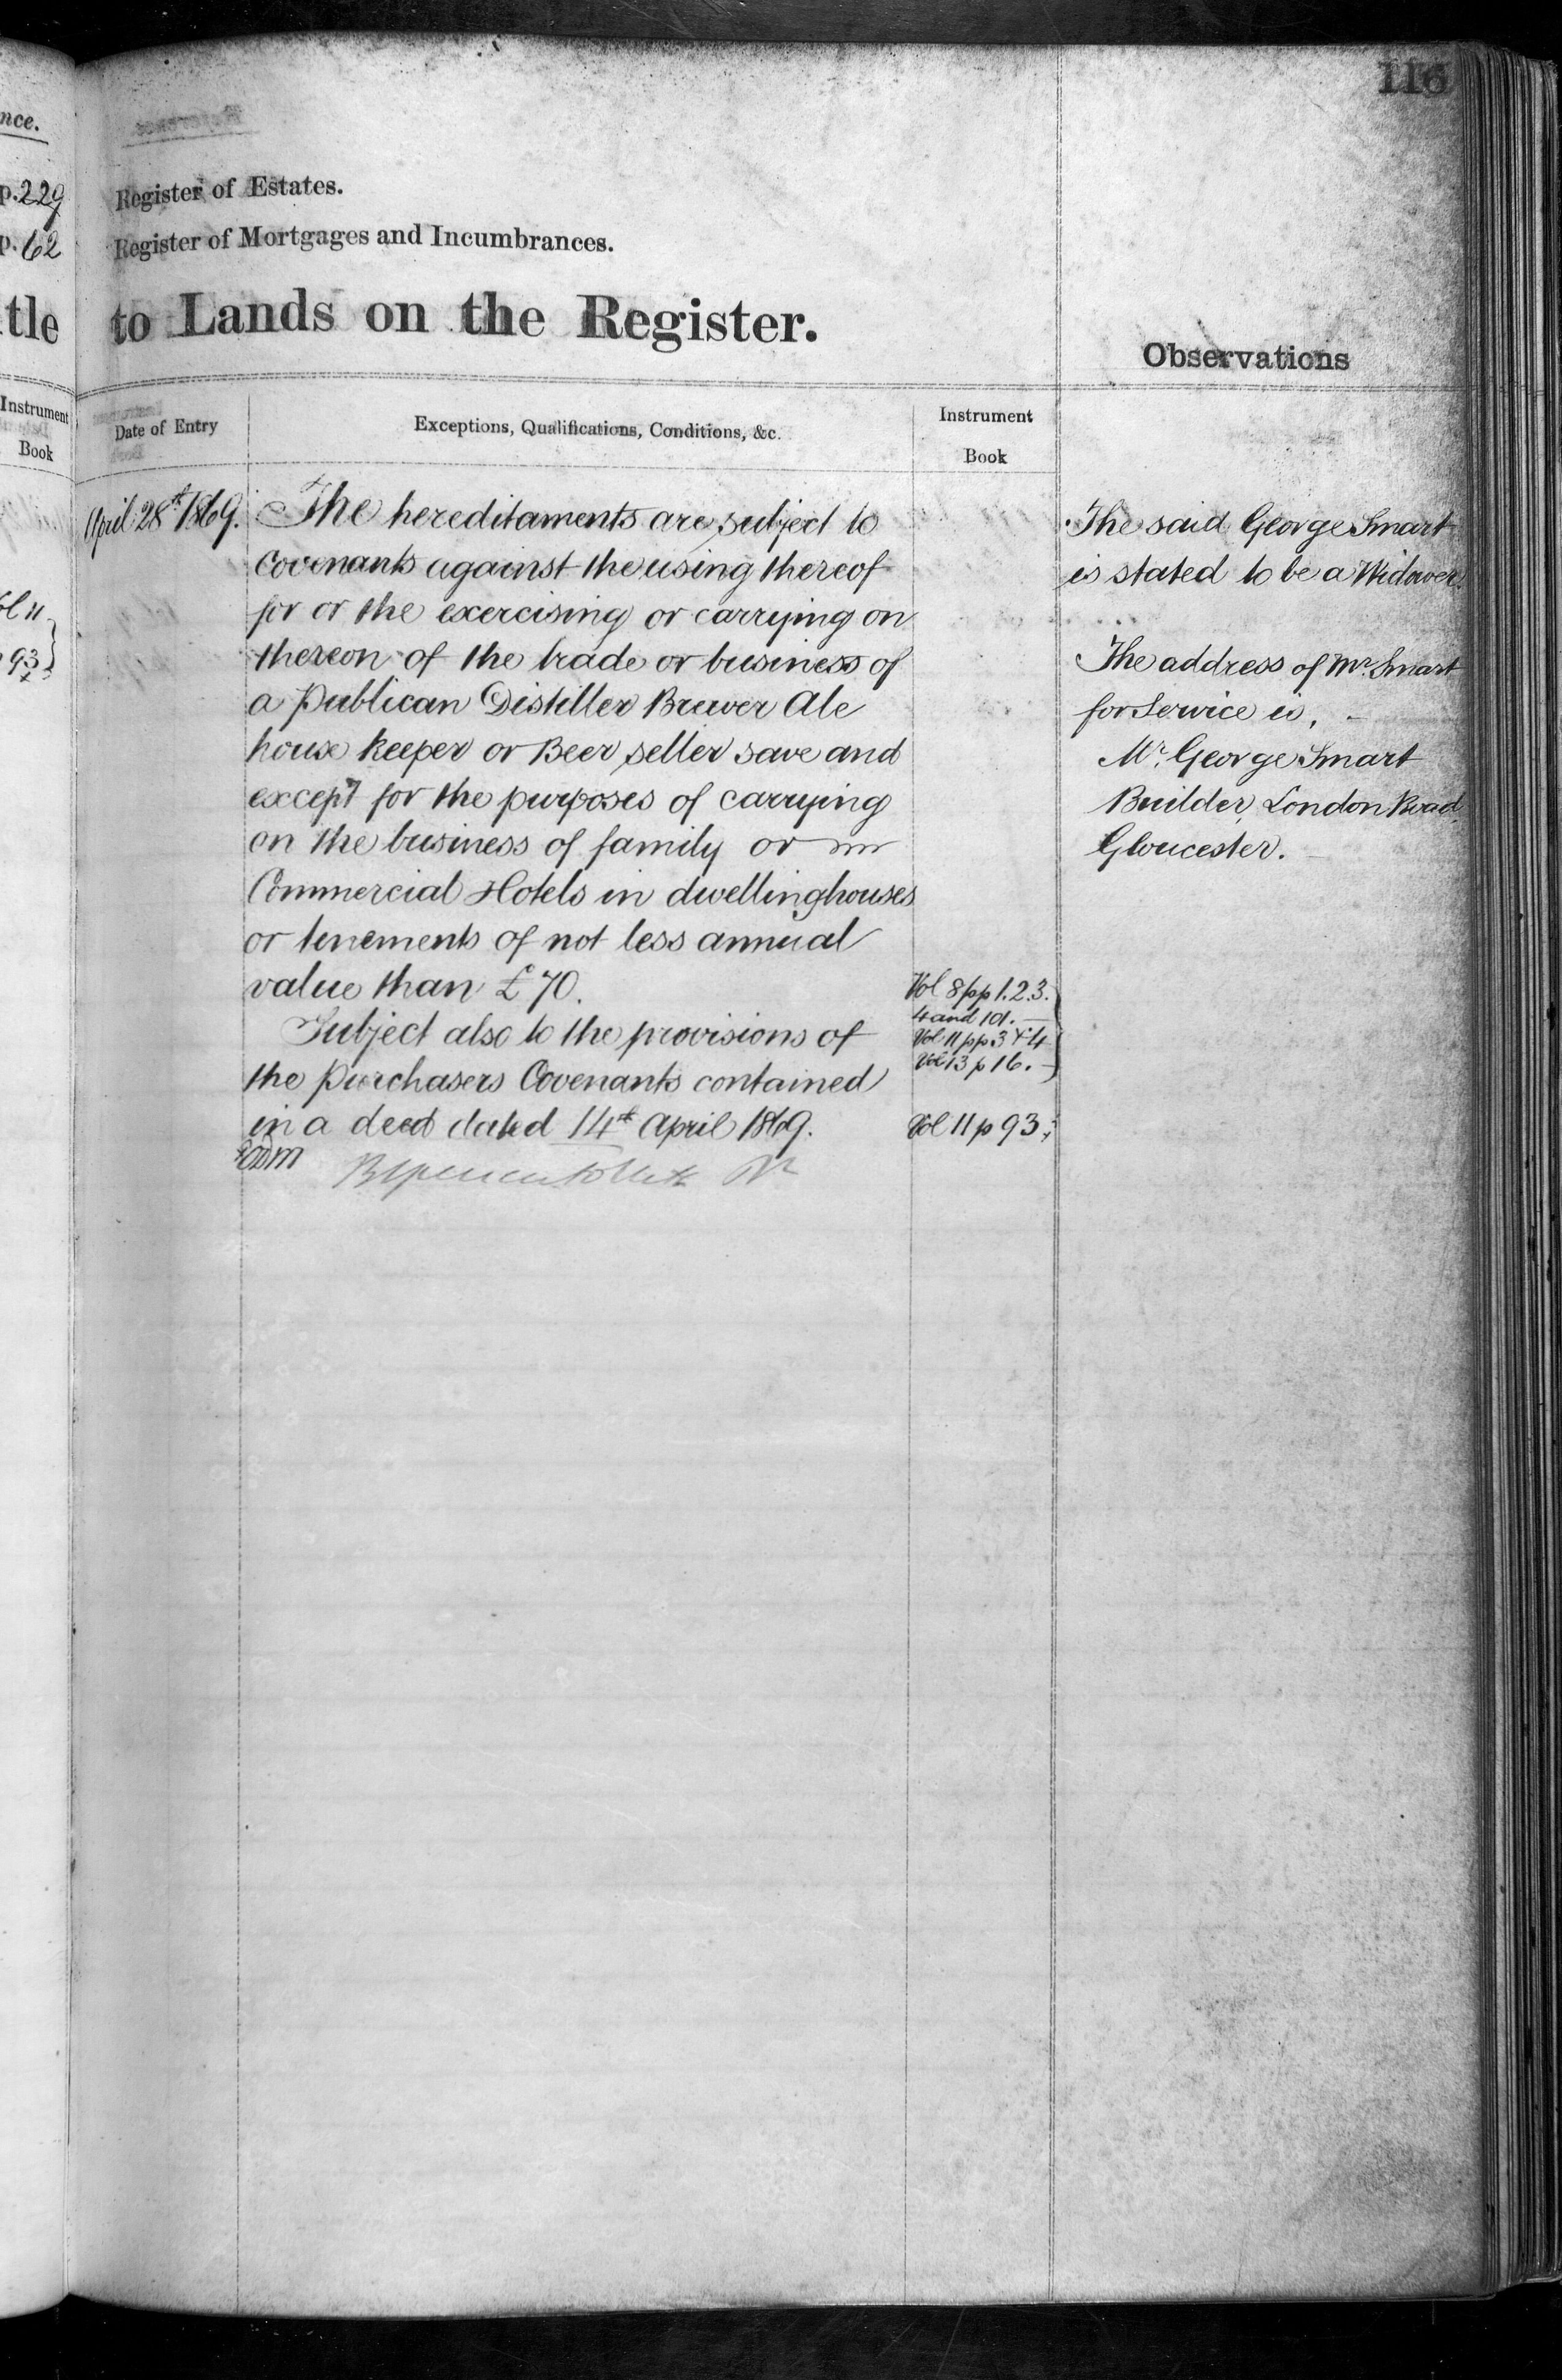 116
nce.
p. 229
p. 62
tle
Instrument
Book
Vol 11
p 93
Register of Estates.
Register of Mortgages and Incumbrances.
to Lands on the Register.
Observations
Date of Entry
Exceptions, Qualifications, Conditions, &c.
Instrument
Book
April 28th 1869.
The hereditaments are subject to
Covenants against the using thereof
for or the exercising or carrying on
thereon of the trade or business of
a Publican Distiller Brewer Ale
house keeper or Beer seller save and
except for the purposes of carrying
on the business of family or
Commercial Hotels in dwellinghouses
or tenements of not less annual
value than £70.
Vol 8 pp 1.2.3.
4 and 101.
Vol 11 pp 3 & 4
Vol 13 p 16.
Subject also to the provisions of
the Purchasers Covenants contained
in a deed dated 14th April 1869.
Vol 11 p 93
The said George Smart
is stated to be a Widower.
The address of Mr. Smart
for Service is,
Mr. George Smart
Builder, London Road,
Gloucester.